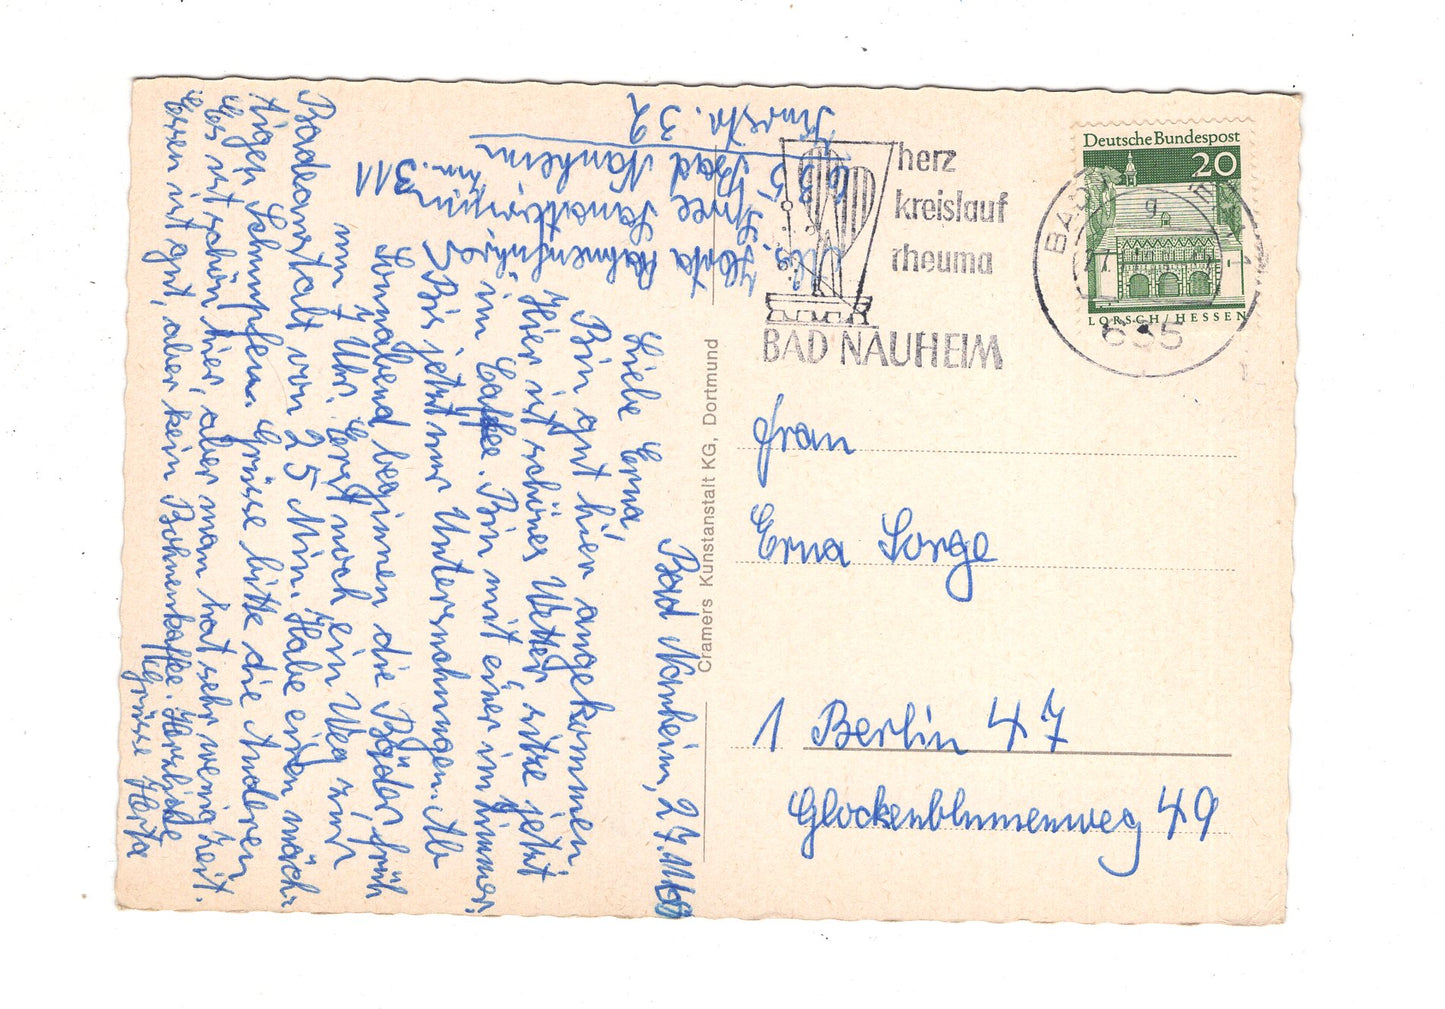 Bad Nauheim, 27.11.69
Liebe Erna,
Bin gut hier angekommen
Hier ist schönes Wetter, sitze jetzt
im Caffee. Bin mit einer im Zimmer.
Bis jetzt nur Untersuchungen. Ab
Sonnabend beginnen die Bäder, früh
um 7 Uhr. Erst noch ein Weg zur
Badeanstalt von 25 Min. Habe einen mäch-
tigen Schnupfen. Grüsse bitte die Anderen
Es ist schön hier, aber man hat sehr wenig Zeit.
Essen ist gut, aber kein Bohnenkaffee. Herzliche
Grüsse Herta
Abs. Herta
Spree Sanatorium
Zim. 311
635 Bad Nauheim
Kurstr. 32
herz
kreislauf
rheuma
BAD NAUHEIM
Deutsche Bundespost
20
LORSCH/HESSEN
BAD
g
635
Cramers Kunstanstalt KG, Dortmund
Frau
Erna Sorge
1 Berlin 47
Glockenblumenweg 49